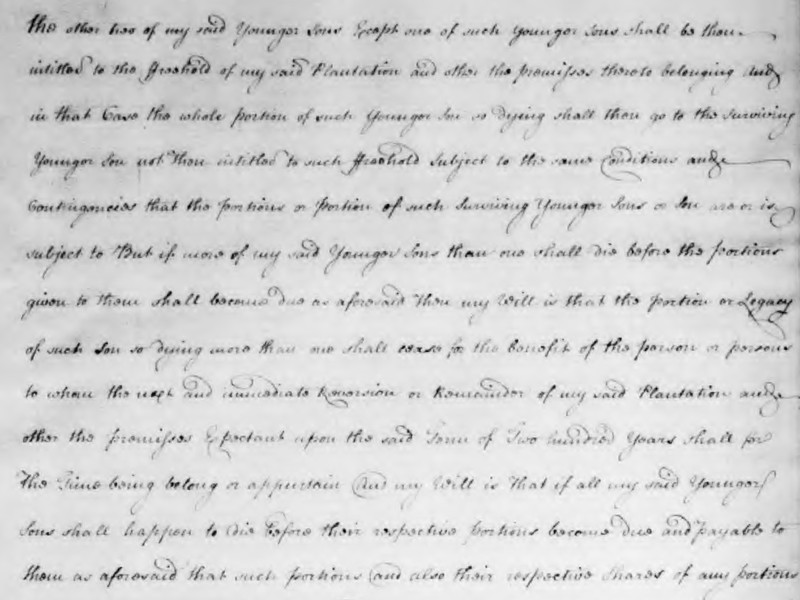 the other two of my said Younger Sons Except one of such younger sons shall be then
intitled to the ffreehold of my said Plantation and other the premisses thereto belonging And
in that Case the whole portion of such Younger Son so dying shall then go to the surviving
Younger Son not then intitled to such ffreehold Subject to the same Conditions and
Contingencies that the portions or portion of such Surviving Younger Sons or Son are or is
subject to But if more of my said Younger Sons than one shall die before the portions
given to them shall become due as aforesaid Then my Will is that the portion or Legacy
of such Son so dying more than one shall cease for the benefit of the person or persons
to whom the next and immediate Reversion or Remainder of my said Plantation and
other the premisses Expectant upon the said Term of Two hundred Years shall for
the Time being belong or appurtain And my Will is That if all my said Younger
Sons shall happen to die before their respective portions become due and payable to
them as aforesaid that such portions and also their respective shares of any portions